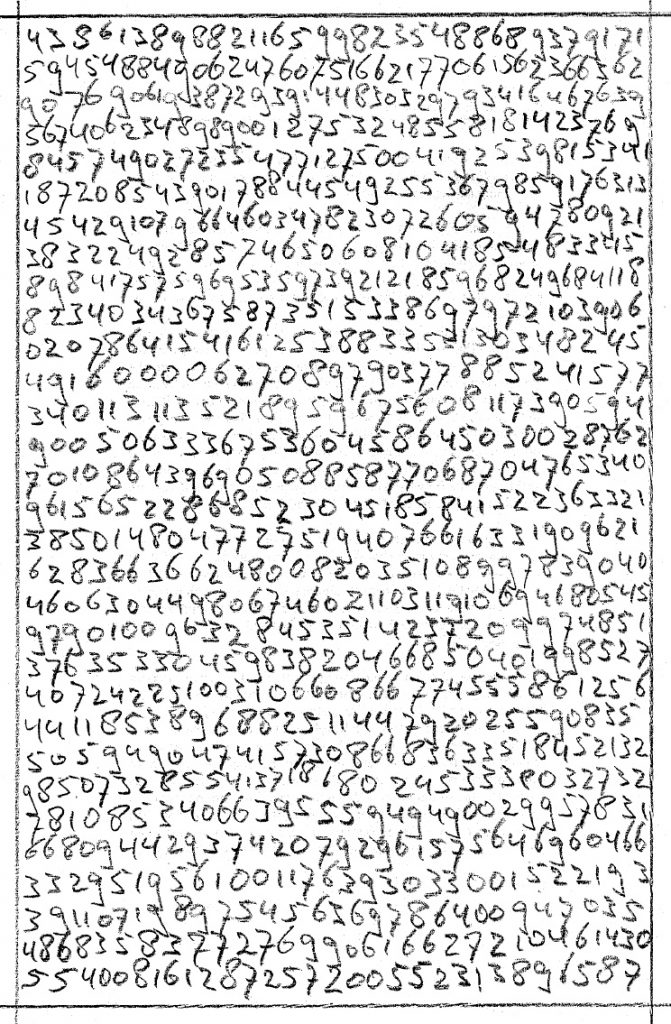 43861389882116599823548868937917 1
5945488490624760751662177061562366562
90769061903872939144830529793416467639
56740623489890012753248558181423769
8457490272355477127500419253981534 1
18720854390178844549255367985917631 3
4542910796646034782307260594280921
38322492857465060810418548334 5
898417575969535973921218596824968411 8
8234034367587351533869797210390 6
0207864154161253883355130348245
4916000062708979037788524157 7
340113113521895967560811739059 4
9005063336753604586450300287 62
7010864396905088588770687047653 40
961565228685230451858415223633 21
38501480477275194076616331909621
6283663662480082035108997839040
4606304498067460211031191069468054 5
979010096328453351423720997485 1
37635333045983820466850401998527
40724225100310660866774555861256
441185389688251144792025590835
505949904741573086683633518452132
985073285541371818024533380327 32
781085340663955594949002995783 1
6680944293742079296157564696046 6
332951956100117639303300152219 3
391107198975454563697864009470 35
486835837727699061662721046143 0
5540081612872572005523138965 87